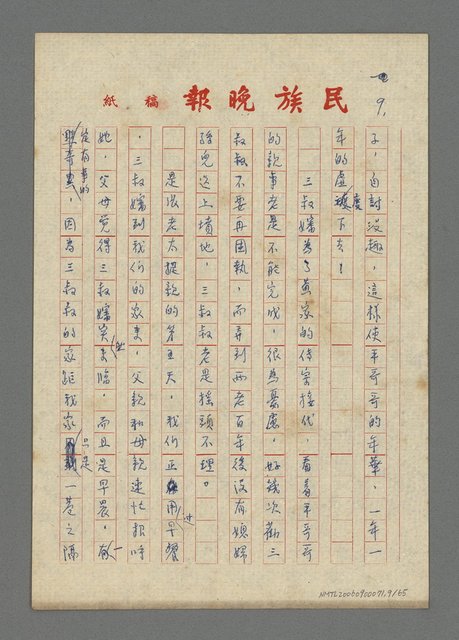 民族晚報 稿紙
9.
子，自討沒趣，這樣使平哥哥的年華，一年一
年的虛度下去！
三叔嬸為了黃家的傳宗接代，看着平哥哥
的親事老是不能完成，很為憂慮，好幾次勸三
叔叔不要再固執，而弄到兩老百年後沒有媳婦
孫兒送上墳地，三叔叔老是搖頭不理。
是張老太提親的第五天，我們正用過早餐
，三叔嬸到我們的家來，父親和母親連忙招呼
她，父母覺得三叔嬸突然來臨，而且是早晨，一
定有事的，因為三叔叔的家距我家只是一巷之隔
NMTL20060900071, 9/65